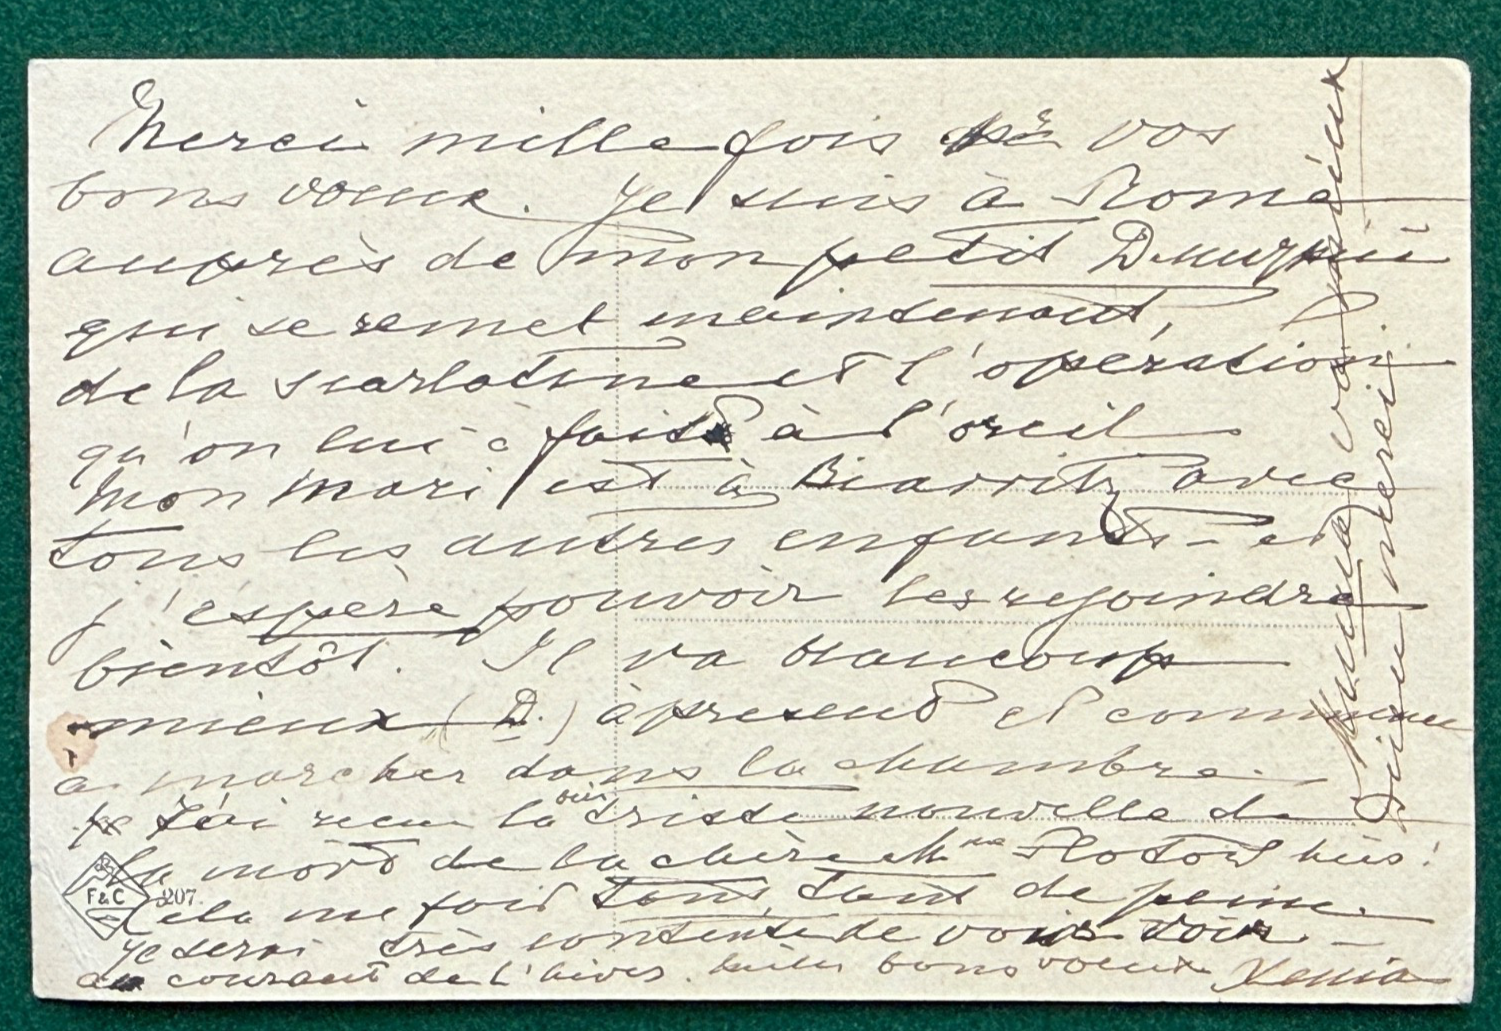 Merci mille fois pr vos
bons voeux. Je suis à Rome
auprès de mon petit
qui se remet maintenant,
de la scarlatine et l'opération
qu'on lui a fait à l'oreil
Mon mari est à Biarritz avec
tous les autres enfants – et
j'espère pouvoir les rejoindre
bientôt. Il va beaucoup
mieux (D.) à present et commence
a marcher dans la chambre.
J'ai recu la triste nouvelle de
la mort de la chère Mme Flotow hier!
Cela me fait tant, tant de peine.
Je serai très contente de vous voir –
au courant de l'hiver. bons voeux Xenia
Maman va mieux
Dieu merci.
F & C
207.